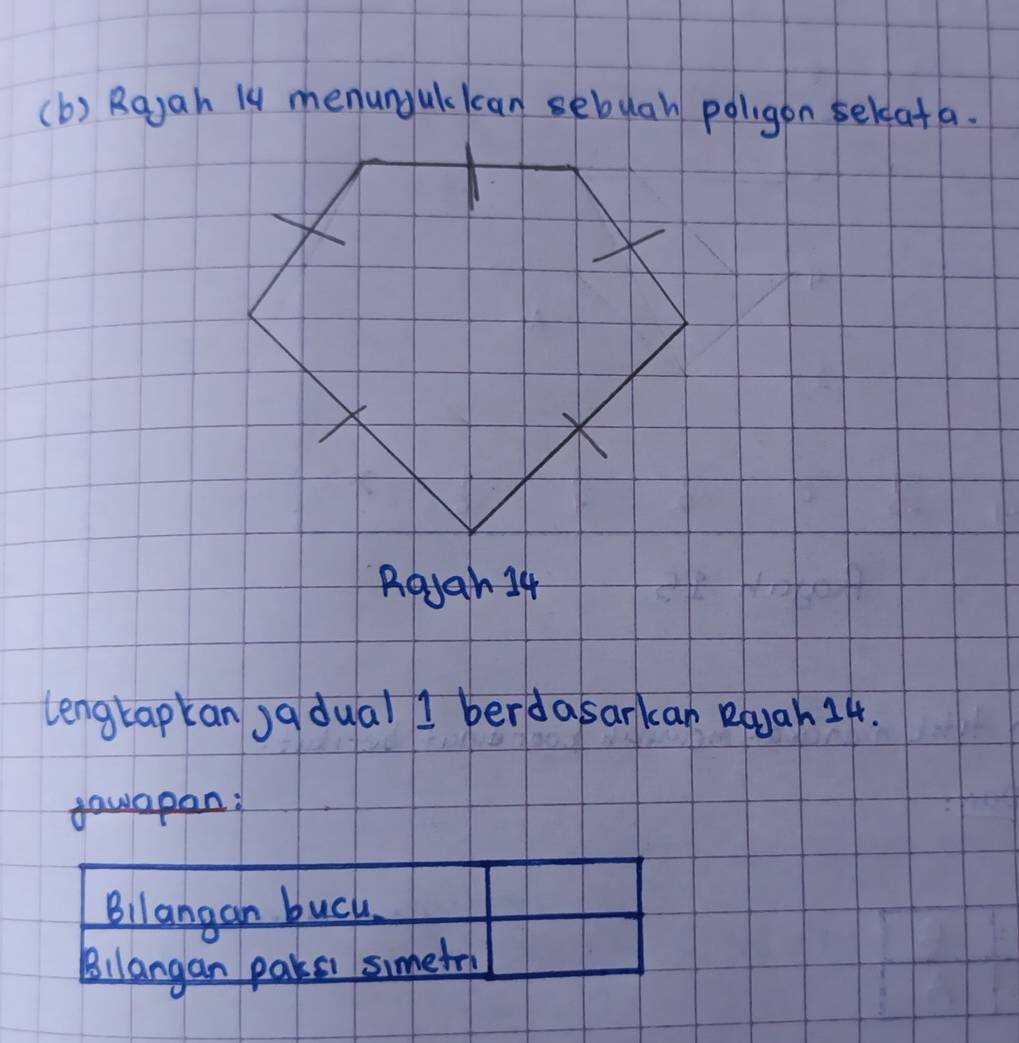 (b) Rajah 14 menunjukkan sebuah poligon sekata.
Rajah 14
Lengkapkan jadual 1 berdasarkan Rajah 14.
jawapan:
Bilangan bucu
Bilangan paksi simetri